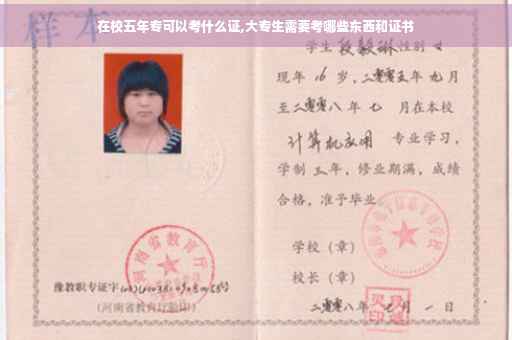 样本
在校五年专可以考什么证,大专生需要考哪些东西和证书
学生 段毅琳 性别 女
现年 16 岁,二零零五年 九月
至二零零八年 七 月在本校
计算机应用 专业学习,
学制 三年,修业期满,成绩
合格,准予毕业
学校(章)
校长(章)
二零零八年 七 月 一 日
河南省教育厅
豫教职专证字
(河南省教育厅验印)